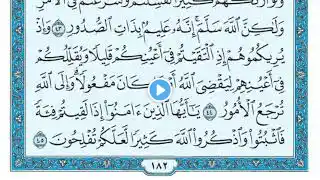 وَلَٰكِنَّ ٱللَّهَ سَلَّمَ إِنَّهُۥ عَلِيمٌۢ بِذَاتِ ٱلصُّدُورِ ٤٣ وَإِذْ
يُرِيكُمُوهُمْ إِذِ ٱلْتَقَيْتُمْ فِىٓ أَعْيُنِكُمْ قَلِيلًا وَيُقَلِّلُكُمْ
فِىٓ أَعْيُنِهِمْ لِيَقْضِىَ ٱللَّهُ أَمْرًا كَانَ مَفْعُولًا وَإِلَى ٱللَّهِ
تُرْجَعُ ٱلْأُمُورُ ٤٤ يَٰٓأَيُّهَا ٱلَّذِينَ ءَامَنُوٓا۟ إِذَا لَقِيتُمْ فِئَةً
فَٱثْبُتُوا۟ وَٱذْكُرُوا۟ ٱللَّهَ كَثِيرًا لَّعَلَّكُمْ تُفْلِحُونَ ٤٥
١٨٢